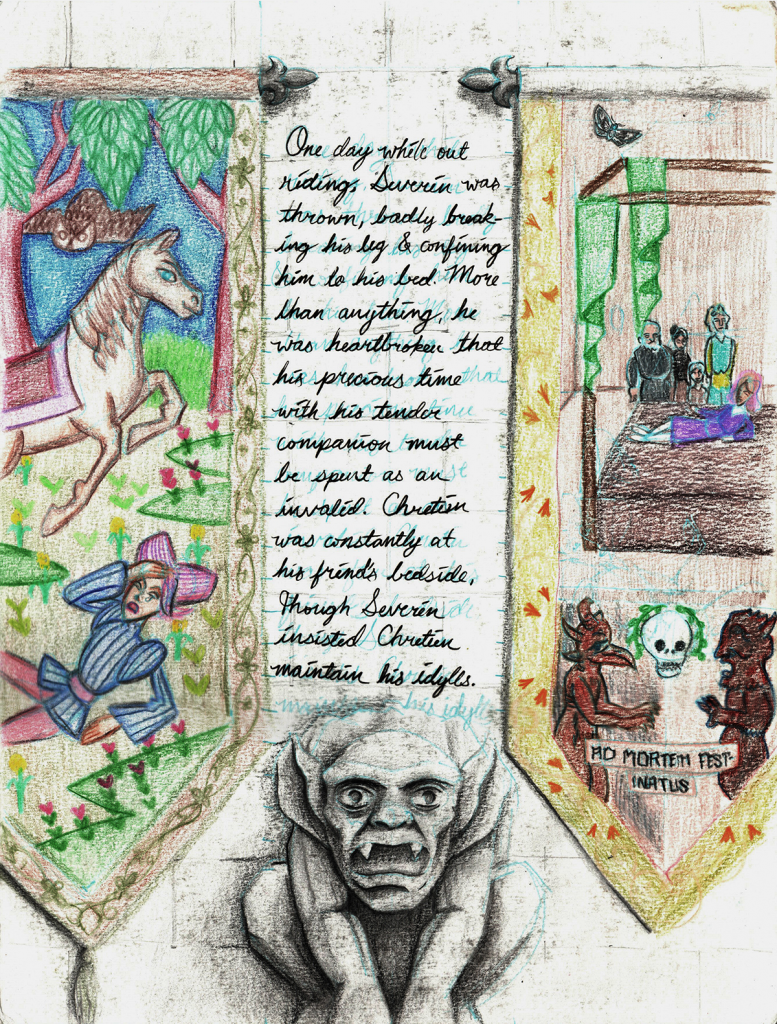 One day while out
riding, Severin was
thrown, badly break-
ing his leg & confining
him to his bed. More
than anything, he
was heartbroken that
his precious time
with his tender
companion must
be spent as an
invalid. Chretien
was constantly at
his frind's bedside,
Though Severin
insisted Chretien
maintain his idylls.
AD MORTEM FEST-
INATUS